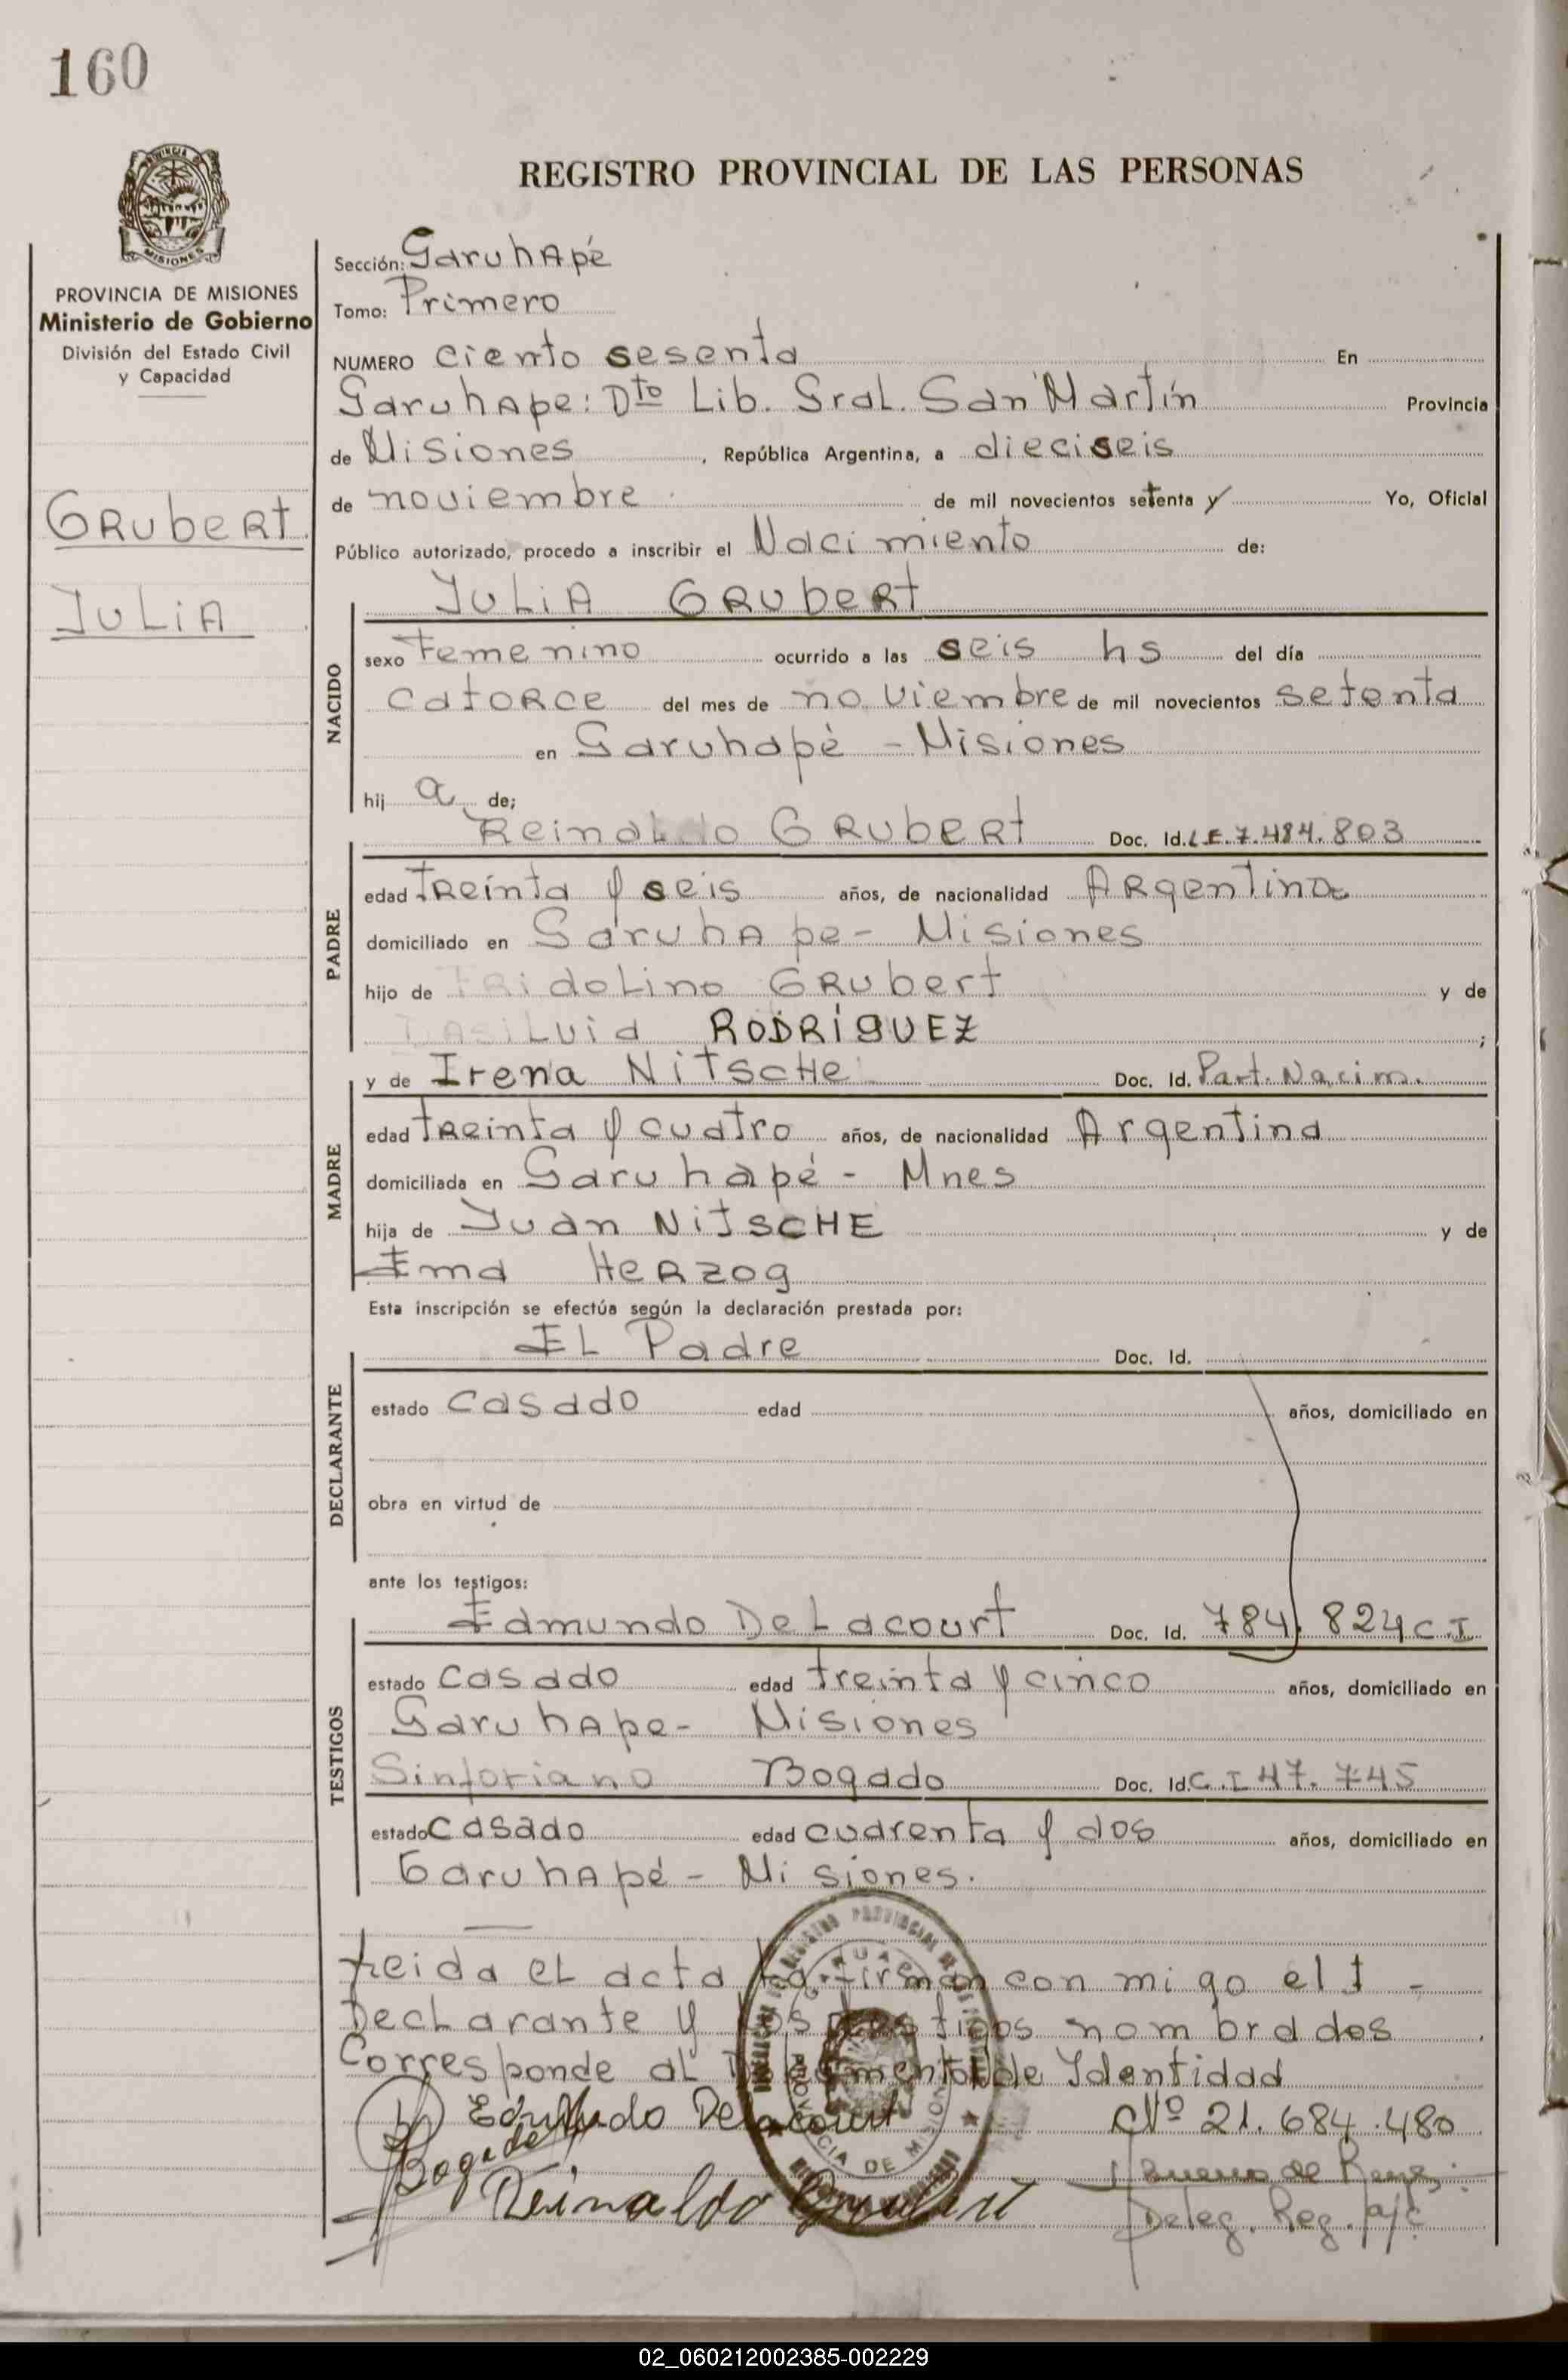 160
REGISTRO PROVINCIAL DE LAS PERSONAS
PROVINCIA DE MISIONES
Ministerio de Gobierno
División del Estado Civil
y Capacidad
GRubeRt
JULiA
Sección: Garuhapé
Tomo: Primero
NUMERO ciento sesenta En
Garuhape: Dto Lib. Gral. San Martín Provincia
de Misiones, República Argentina, a dieciseis
de noviembre de mil novecientos setenta y Yo, Oficial
Público autorizado, procedo a inscribir el Nacimiento de:
JULiA GRubeRt
NACIDO
sexo Femenino ocurrido a las seis hs del día
catorce del mes de noviembre de mil novecientos setenta
en Garuhapé - Misiones
hij a de;
Reinaldo GRubeRt Doc. Id. L.E. 7.484.803
PADRE
edad treinta y seis años, de nacionalidad Argentina
domiciliado en Garuhape - Misiones
hijo de Fridolino GRubert y de
RODRÍGUEZ ;
y de Irena NITSCHE Doc. Id. Part. Nacim.
MADRE
edad treinta y cuatro años, de nacionalidad Argentina
domiciliada en Garuhapé - Mnes
hija de Juan NITSCHE y de
Ema HERZOg
Esta inscripción se efectúa según la declaración prestada por:
EL Padre Doc. Id.
DECLARANTE
estado casado edad años, domiciliado en
obra en virtud de
ante los testigos:
Edmundo DeLacourt Doc. Id. 784.824 C.I
TESTIGOS
estado casado edad treinta y cinco años, domiciliado en
Garuhape - Misiones
Sinforiano Bogado Doc. Id. C.I 47.745
estado casado edad cuarenta y dos años, domiciliado en
Garuhapé - Misiones.
Leida el acta la firman con migo el
Declarante y los testigos nombrados
Corresponde al Documento de Identidad
Edmundo Delacourt Nº 21.684.480
Bogado
Reinaldo Grubert
Deleg. Reg. a/c
02_060212002385-002229